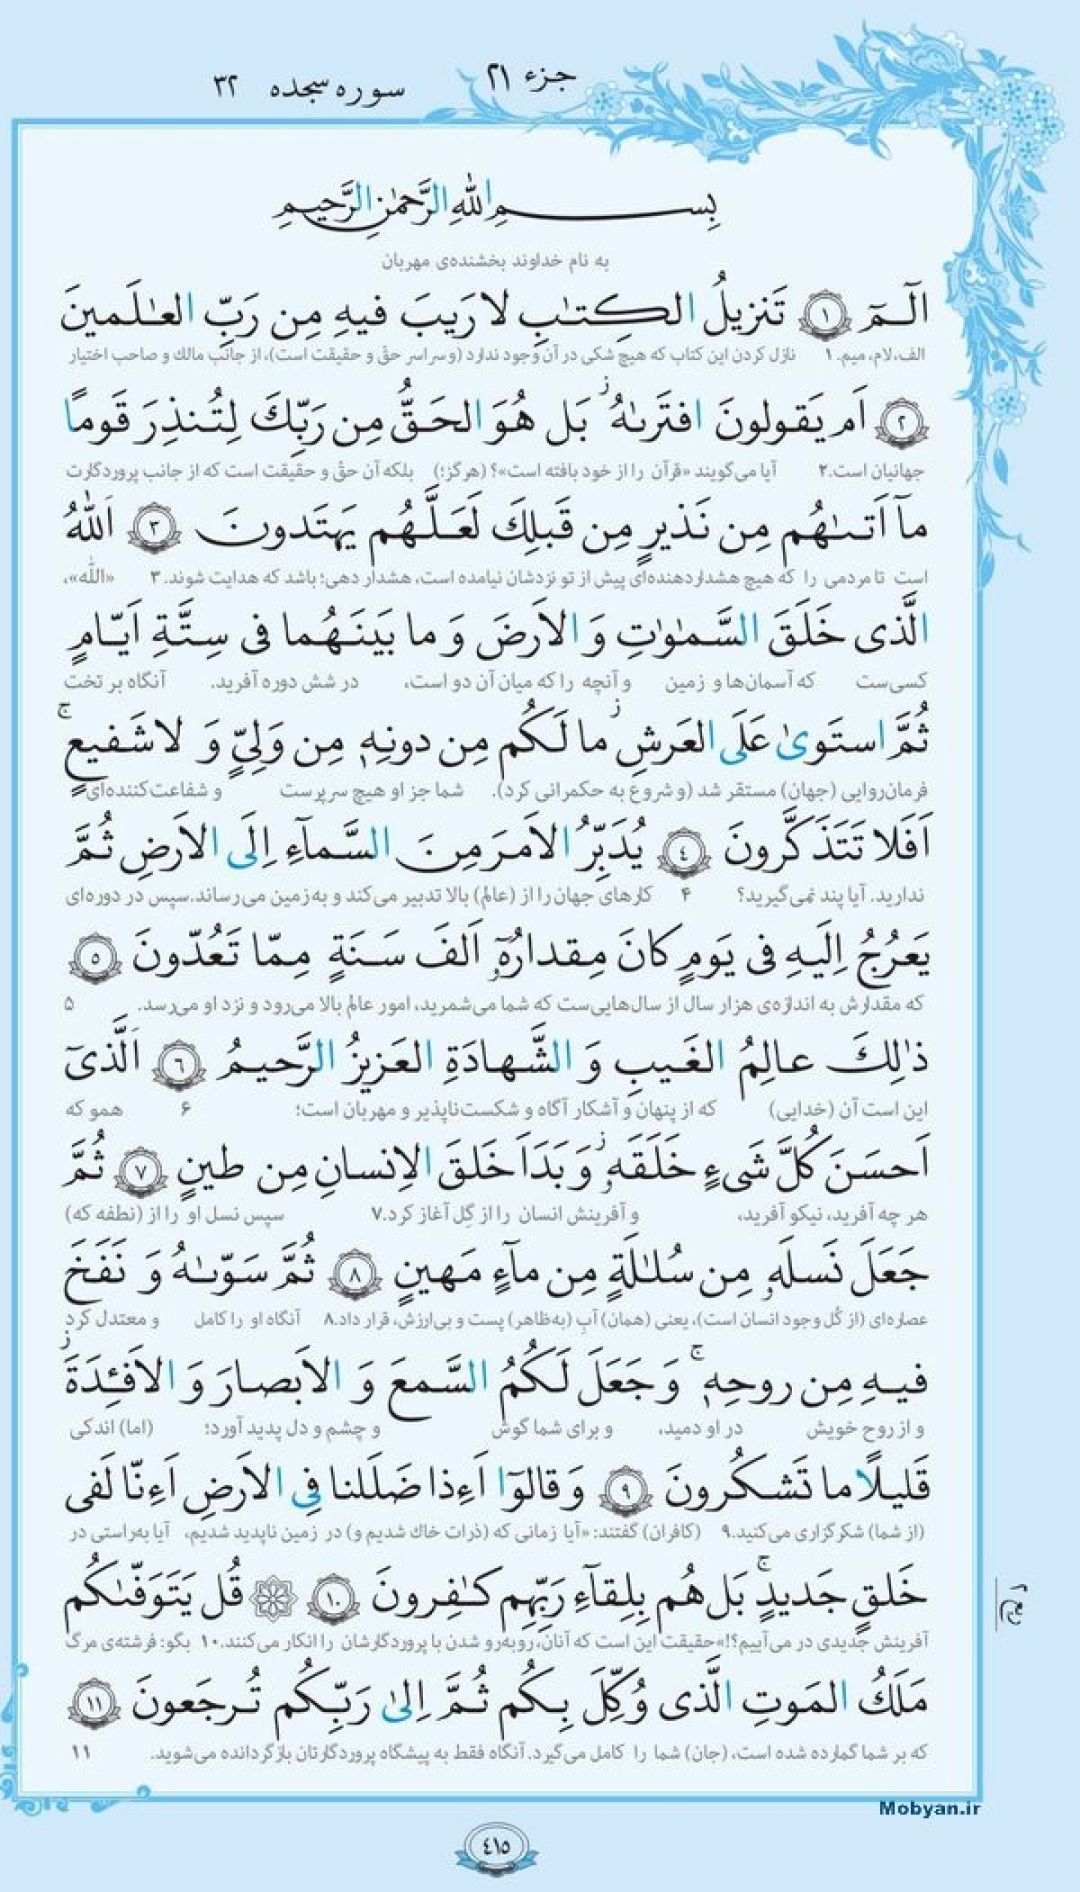 جزء ۲۱
سوره سجده ۳۲
بِسمِ اللّٰهِ الرَّحمٰنِ الرَّحیمِ
به نام خداوند بخشنده‌ی مهربان
الٓـمٓ ﴿۱﴾ تَنزیلُ الکِتـٰبِ لا رَیبَ فیهِ مِن رَبِّ العـٰلَمینَ
الف، لام، میم. ۱ نازل کردن این کتاب که هیچ شکی در آن وجود ندارد (و سراسر حقّ و حقیقت است)، از جانب مالك و صاحب اختیار
﴿۲﴾ اَم یَقولونَ افتَرىٰهُ ۚ بَل هُوَ الحَقُّ مِن رَبِّكَ لِتُنذِرَ قَومًا
جهانیان است.۲ آیا می‌گویند «قرآن را از خود بافته است»؟ (هرگز؛) بلکه آن حقّ و حقیقت است که از جانب پروردگارت
مآ اَتىٰهُم مِن نَذیرٍ مِن قَبلِكَ لَعَلَّهُم یَهتَدونَ ﴿۳﴾ اَللّٰهُ
است تا مردمی را که هیچ هشداردهنده‌ای پیش از تو نزدشان نیامده است، هشدار دهی؛ باشد که هدایت شوند. ۳ «اللّٰه»،
الَّذی خَلَقَ السَّمـٰوٰتِ وَ الاَرضَ وَ ما بَینَهُما فی سِتَّةِ اَیّامٍ
کسی‌ست که آسمان‌ها و زمین و آنچه را که میان آن دو است، در شش دوره آفرید. آنگاه بر تخت
ثُمَّ استَوىٰ عَلَى العَرشِ ۖ ما لَكُم مِن دونِهٖ مِن وَلِیٍّ وَ لا شَفیعٍ ۚ
فرمان‌روایی (جهان) مستقر شد (و شروع به حکمرانی کرد). شما جز او هیچ سرپرست و شفاعت‌کننده‌ای
اَفَلا تَتَذَكَّرونَ ﴿۴﴾ یُدَبِّرُ الاَمرَ مِنَ السَّمآءِ اِلَى الاَرضِ ثُمَّ
ندارید. آیا پند نمی‌گیرید؟ ۴ کارهای جهان را از (عالم) بالا تدبیر می‌کند و به زمین می‌رساند. سپس در دوره‌ای
یَعرُجُ اِلَیهِ فی یَومٍ كانَ مِقدارُهٗٓ اَلفَ سَنَةٍ مِمّا تَعُدّونَ ﴿۵﴾
که مقدارش به اندازه‌ی هزار سال از سال‌هایی‌ست که شما می‌شمرید، امور عالم بالا می‌رود و نزد او می‌رسد. ۵
ذٰلِكَ عالِمُ الغَیبِ وَ الشَّهادَةِ العَزیزُ الرَّحیمُ ﴿۶﴾ اَلَّذیٓ
این است آن (خدایی) که از پنهان و آشکار آگاه و شکست‌ناپذیر و مهربان است؛ ۶ همو که
اَحسَنَ كُلَّ شَیءٍ خَلَقَهٗ ۖ وَ بَدَاَ خَلقَ الاِنسانِ مِن طینٍ ﴿۷﴾ ثُمَّ
هر چه آفرید، نیکو آفرید، و آفرینش انسان را از گِل آغاز کرد.۷ سپس نسل او را از (نطفه که)
جَعَلَ نَسلَهٗ مِن سُلـٰلَةٍ مِن مآءٍ مَهینٍ ﴿۸﴾ ثُمَّ سَوّىٰهُ وَ نَفَخَ
عصاره‌ای (از کُل وجود انسان است)، یعنی (همان) آبِ (به‌ظاهر) پست و بی‌ارزش، قرار داد.۸ آنگاه او را کامل و معتدل کرد
فیهِ مِن روحِهٖ ۚ وَ جَعَلَ لَكُمُ السَّمعَ وَ الاَبصارَ وَ الاَفئِدَةَ ۚ
و از روح خویش در او دمید، و برای شما گوش و چشم و دل پدید آورد؛ (اما) اندکی
قَلیلًا ما تَشكُرونَ ﴿۹﴾ وَ قالوٓا اَءِذا ضَلَلنا فِی الاَرضِ اَءِنّا لَفی
(از شما) شکرگزاری می‌کنید.۹ (کافران) گفتند: «آیا زمانی که (ذرات خاك شدیم و) در زمین ناپدید شدیم، آیا به‌راستی در
خَلقٍ جَدیدٍ ۚ بَل هُم بِلِقآءِ رَبِّهِم كـٰفِرونَ ﴿۱۰﴾ ۞ قُل یَتَوَفّىٰكُم
آفرینش جدیدی در می‌آییم؟!» حقیقت این است که آنان، روبه‌رو شدن با پروردگارشان را انکار می‌کنند.۱۰ بگو: فرشته‌ی مرگ
مَلَكُ المَوتِ الَّذی وُكِّلَ بِكُم ثُمَّ اِلىٰ رَبِّكُم تُرجَعونَ ﴿۱۱﴾
که بر شما گمارده شده است، (جان) شما را کامل می‌گیرد. آنگاه فقط به پیشگاه پروردگارتان بازگردانده می‌شوید. ۱۱
Mobyan.ir
٤١٥